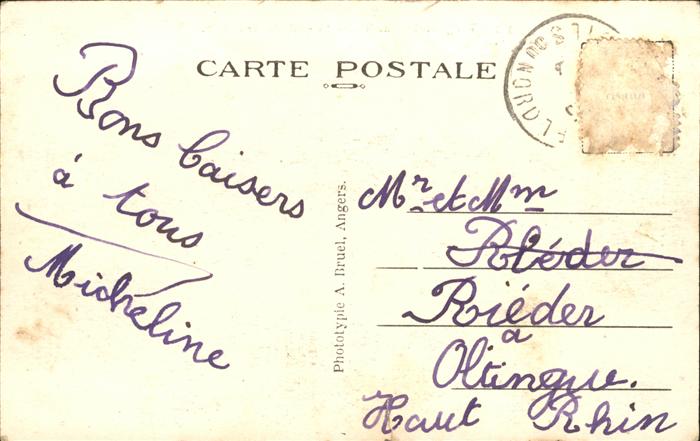 CARTE POSTALE
Bons baisers
à tous
Micheline
Phototypie A. Bruel, Angers.
Mr et Mm
Riéder
à
Oltingue.
Haut Rhin